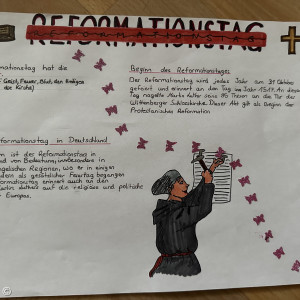 REFORMATIONSTAG
mationstag hat die
Geist, Feuer, Blut, den Heiligen
die Kirche)
Beginn des Reformationstages
Der Reformationstag wird jedes Jahr am 31 Oktober
gefeiert und erinnert an den Tag im Jahr 1517. An diesem
Tag nagelte Martin Luther seine 95 Thesen an die Tür der
Wittenberger Schlosskirche. Dieser Akt gilt als Beginn der
Protestantischen Reformation
formationstag in Deutschland
ist der Reformationstag in
von Bedeutung, insbesondere in
gelischen Regionen, wo er in einigen
als gesetzlicher Feiertag begangen
ormationstag erinnert auch an den
Martin Luthers auf die religiöse und politische
Europas.